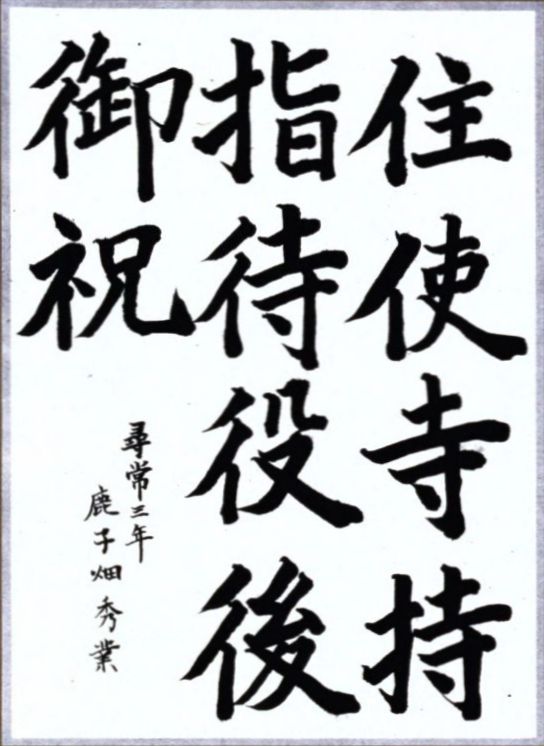 住使寺持
指待役後
御祝
尋常三年
鹿子畑秀業